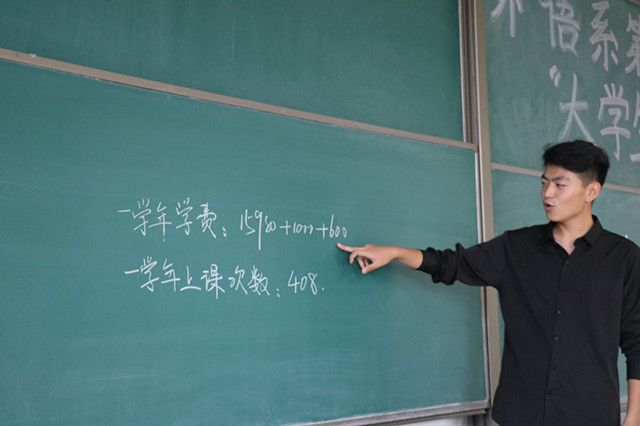 一学年学费：15980+1000+600
一学年上课次数：408.
外语系第
“大学生